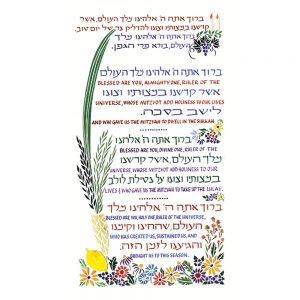 ברוך אתה ה' אלהינו מלך העולם,
אשר קדשנו במצותיו וצונו להדליק נר של יום טוב.
ברוך אתה ה' אלהינו מלך
העולם, בורא פרי הגפן.
ברוך אתה ה' אלהינו מלך העולם
BLESSED ARE YOU, ALMIGHTY ONE, RULER OF THE
אשר קדשנו במצותיו וצונו
UNIVERSE, WHOSE MITZVOT ADD HOLINESS TO OUR LIVES
לישב בסכה.
AND WHO GAVE US THE MITZVAH TO DWELL IN THE SUKKAH.
ברוך אתה ה' אלהינו
BLESSED ARE YOU, DIVINE ONE, RULER OF
מלך העולם, אשר קדשנו
THE UNIVERSE, WHOSE MITZVOT ADD HOLINESS TO OUR
במצותיו וצונו על נטילת לולב.
LIVES & WHO GAVE US THE MITZVAH TO TAKE UP THE LULAV.
ברוך אתה ה' אלהינו מלך
BLESSED ARE YOU, HOLY ONE, RULER OF THE UNIVERSE,
העולם, שהחינו וקימנו
WHO HAS CREATED US, SUSTAINED US, AND
והגיענו לזמן הזה.
BROUGHT US TO THIS SEASON.